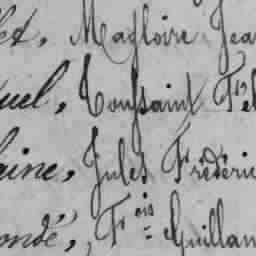 let, Magloire Jea
uel, Toussaint Fé
aine, Jules Frédéric
ondé, Fois Guillau